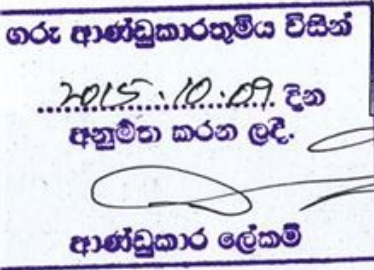 ගරු ආණ්ඩුකාරතුමිය විසින්
2015.10.09. දින
අනුමත කරන ලදී.
ආණ්ඩුකාර ලේකම්